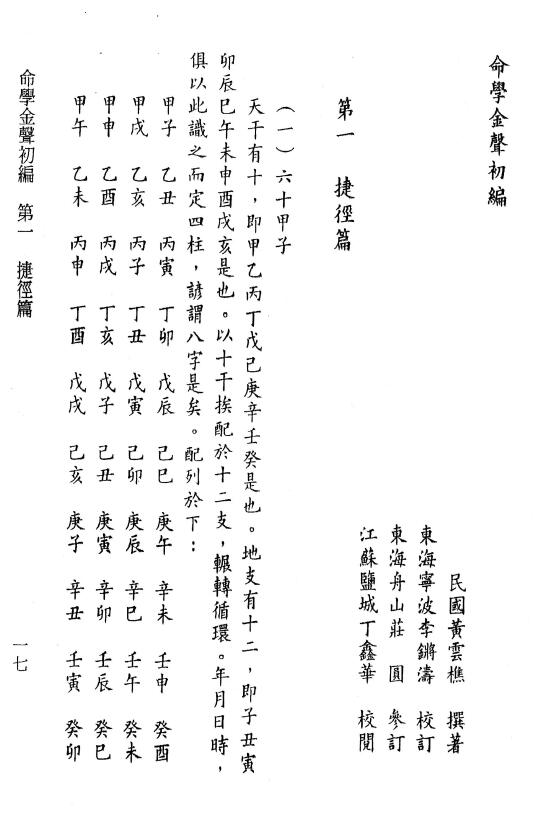 命學金聲初編
民國黃雲樵　撰著
東海寧波李鏘濤　校訂
東海舟山莊　圓　參訂
江蘇鹽城丁鑫華　校閱
第一　捷徑篇
（一）六十甲子
天干有十，即甲乙丙丁戊己庚辛壬癸是也。地支有十二，即子丑寅
卯辰巳午未申酉戌亥是也。以十干挨配於十二支，輾轉循環。年月日時，
俱以此識之而定四柱，諺謂八字是矣。配列於下：
甲子　乙丑　丙寅　丁卯　戊辰　己巳　庚午　辛未　壬申　癸酉
甲戌　乙亥　丙子　丁丑　戊寅　己卯　庚辰　辛巳　壬午　癸未
甲申　乙酉　丙戌　丁亥　戊子　己丑　庚寅　辛卯　壬辰　癸巳
甲午　乙未　丙申　丁酉　戊戌　己亥　庚子　辛丑　壬寅　癸卯
命學金聲初編　第一　捷徑篇
一七